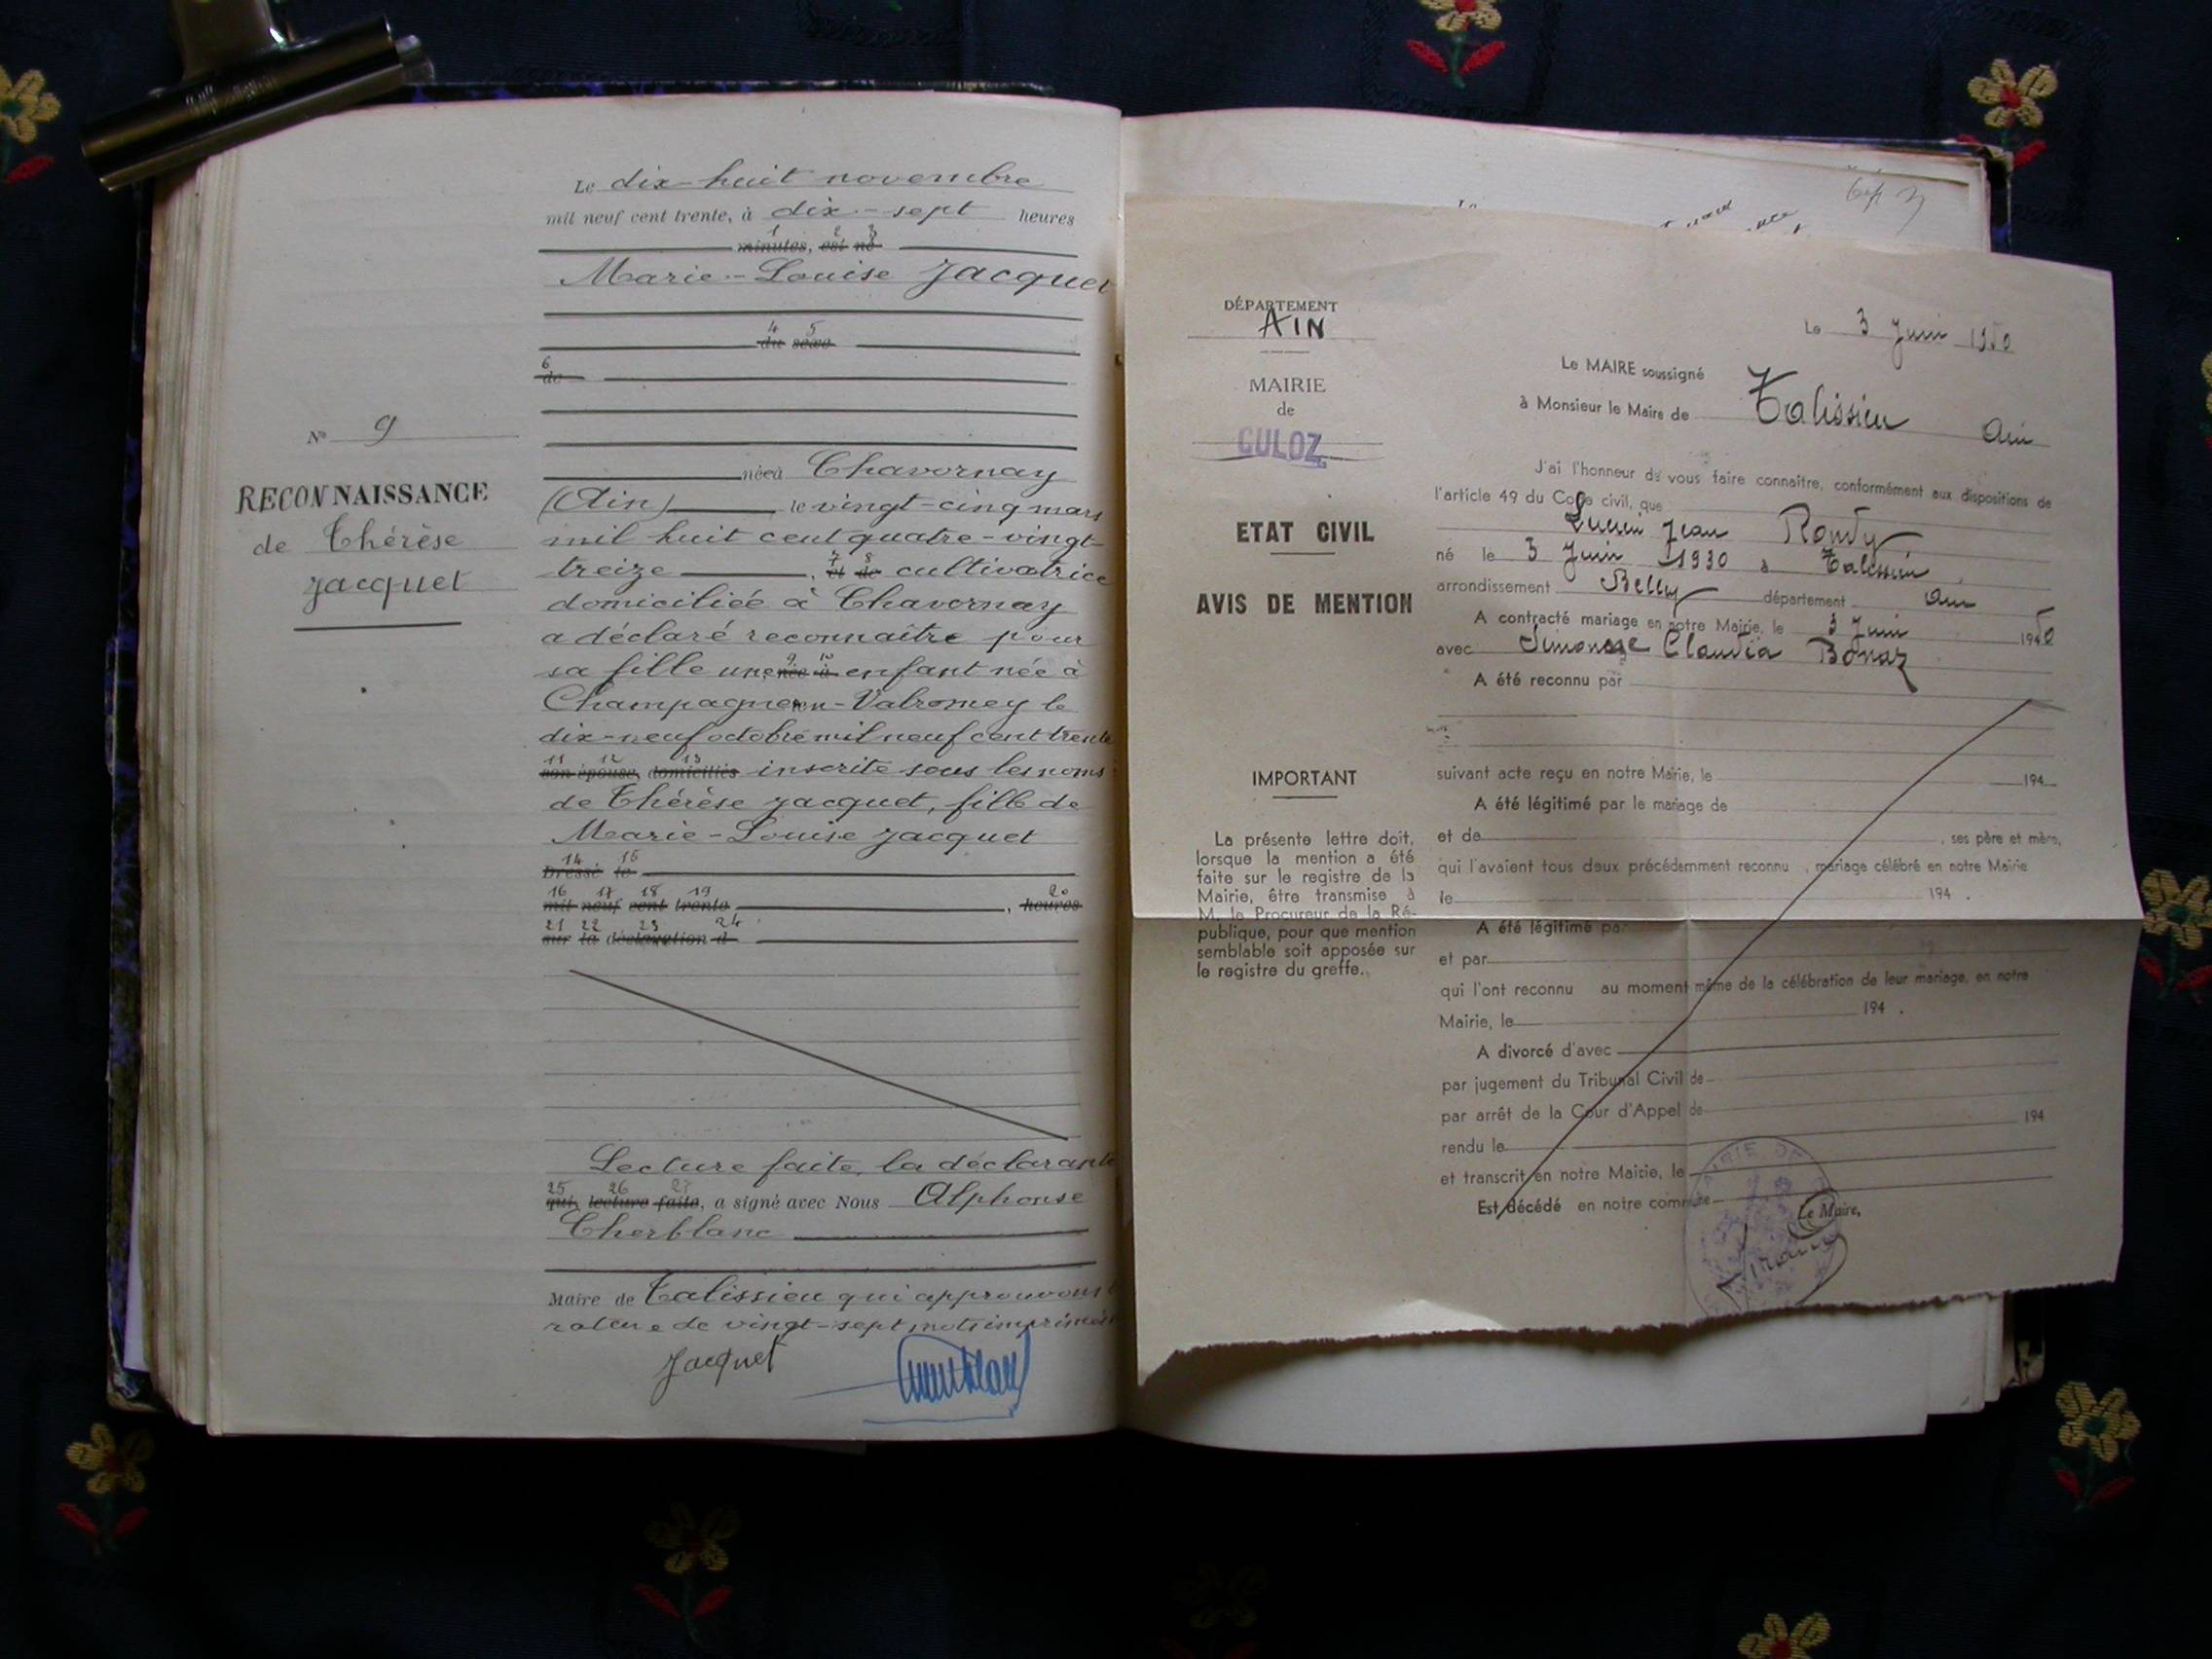 Le dix-huit novembre
mil neuf cent trente, à dix-sept heures
1 2 3
minutes, est né
Marie-Louise Jacquet
4 5
du sexe
6
de
N° 9
née à Chavornay
RECONNAISSANCE
de Thérèse
Jacquet
(Ain) , le vingt-cinq mars
mil huit cent quatre-vingt-
7 8
treize , et de cultivatrice
domiciliée à Chavornay
a déclaré reconnaître pour
9 10
sa fille une née à enfant née à
Champagne-en-Valromey le
dix-neuf octobre mil neuf cent trente
11 12 13
son épouse, domiciliés inscrite sous les noms
de Thérèse Jacquet, fille de
Marie-Louise Jacquet
14 15
Dressé le
16 17 18 19 20
mil neuf cent trente , heures
21 22 23 24
sur la déclaration d
Lecture faite, la déclarante
25 26 27
qui, lecture faite, a signé avec Nous Alphonse
Cherblanc
Maire de Talissieu qui approuvons
rature de vingt-sept mots imprimés
Jacquet
DÉPARTEMENT
AIN
MAIRIE
de
CULOZ
ETAT CIVIL
AVIS DE MENTION
IMPORTANT
La présente lettre doit,
lorsque la mention a été
faite sur le registre de la
Mairie, être transmise à
M. le Procureur de la Ré-
publique, pour que mention
semblable soit apposée sur
le registre du greffe.
Le 3 Juin 1950
Le MAIRE soussigné
à Monsieur le Maire de Talissieu Ain
J'ai l'honneur de vous faire connaître, conformément aux dispositions de
l'article 49 du Code civil, que
Lucien Jean
né le 3 Juin 1930 à Talissieu
arrondissement Belley département Ain
A contracté mariage en notre Mairie, le 3 Juin 1950
avec Simonne Claudia Bonaz
A été reconnu par
suivant acte reçu en notre Mairie, le 194
A été légitimé par le mariage de
et de , ses père et mère,
qui l'avaient tous deux précédemment reconnu , mariage célébré en notre Mairie
le 194 .
A été légitimé par
et par
qui l'ont reconnu au moment même de la célébration de leur mariage, en notre
Mairie, le 194 .
A divorcé d'avec
par jugement du Tribunal Civil de
par arrêt de la Cour d'Appel de
rendu le 194
et transcrit en notre Mairie, le
Est décédé en notre commune
Le Maire,
MAIRIE DE